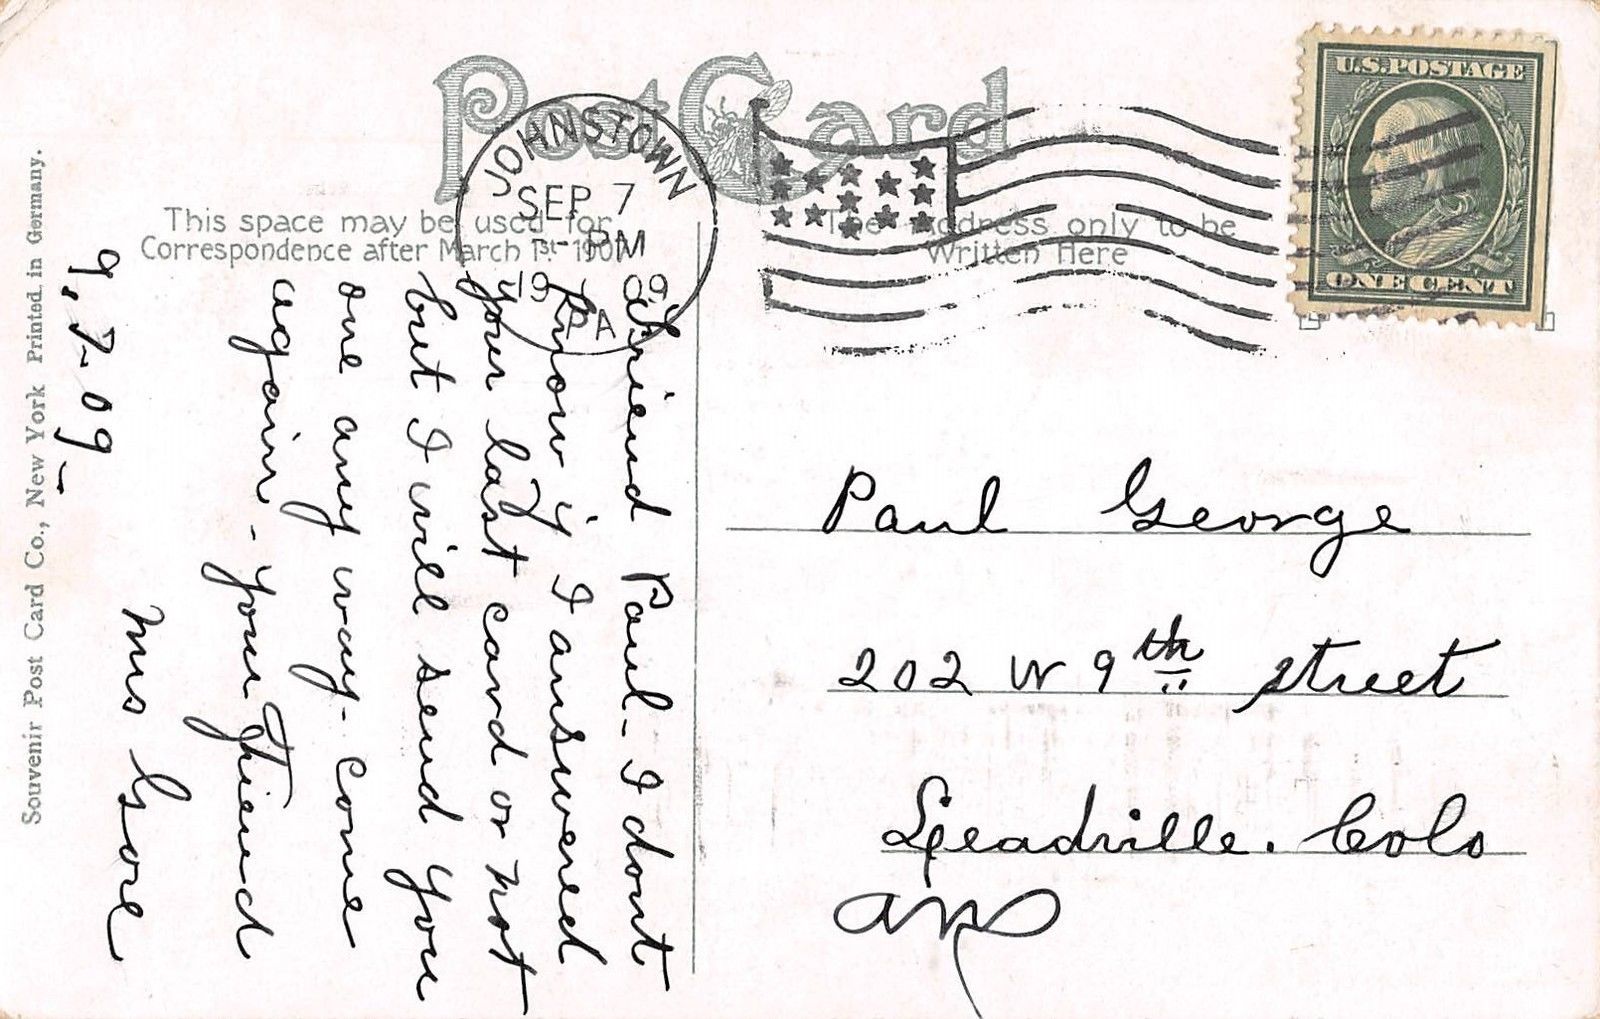 Post Card
This space may be used for
Correspondence after March 1st 1907
The Address only to be
Written Here
JOHNSTOWN
SEP 7
PM
1909
PA
U.S. POSTAGE
ONE CENT
Souvenir Post Card Co., New York Printed in Germany.
9.7-09-
Friend Paul - I dont
know if I answered
your last card or not
but I will send you
one any way - come
again - your Friend
Mrs Gore
Paul George
202 W 9th street
Leadville. Colo